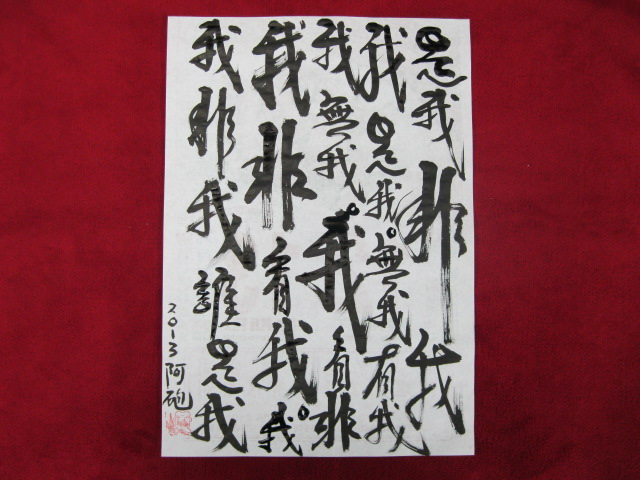 是我非我
我是我。無我有我
我無我。我看非
我非看我我。
我非我誰是我
2013阿砲